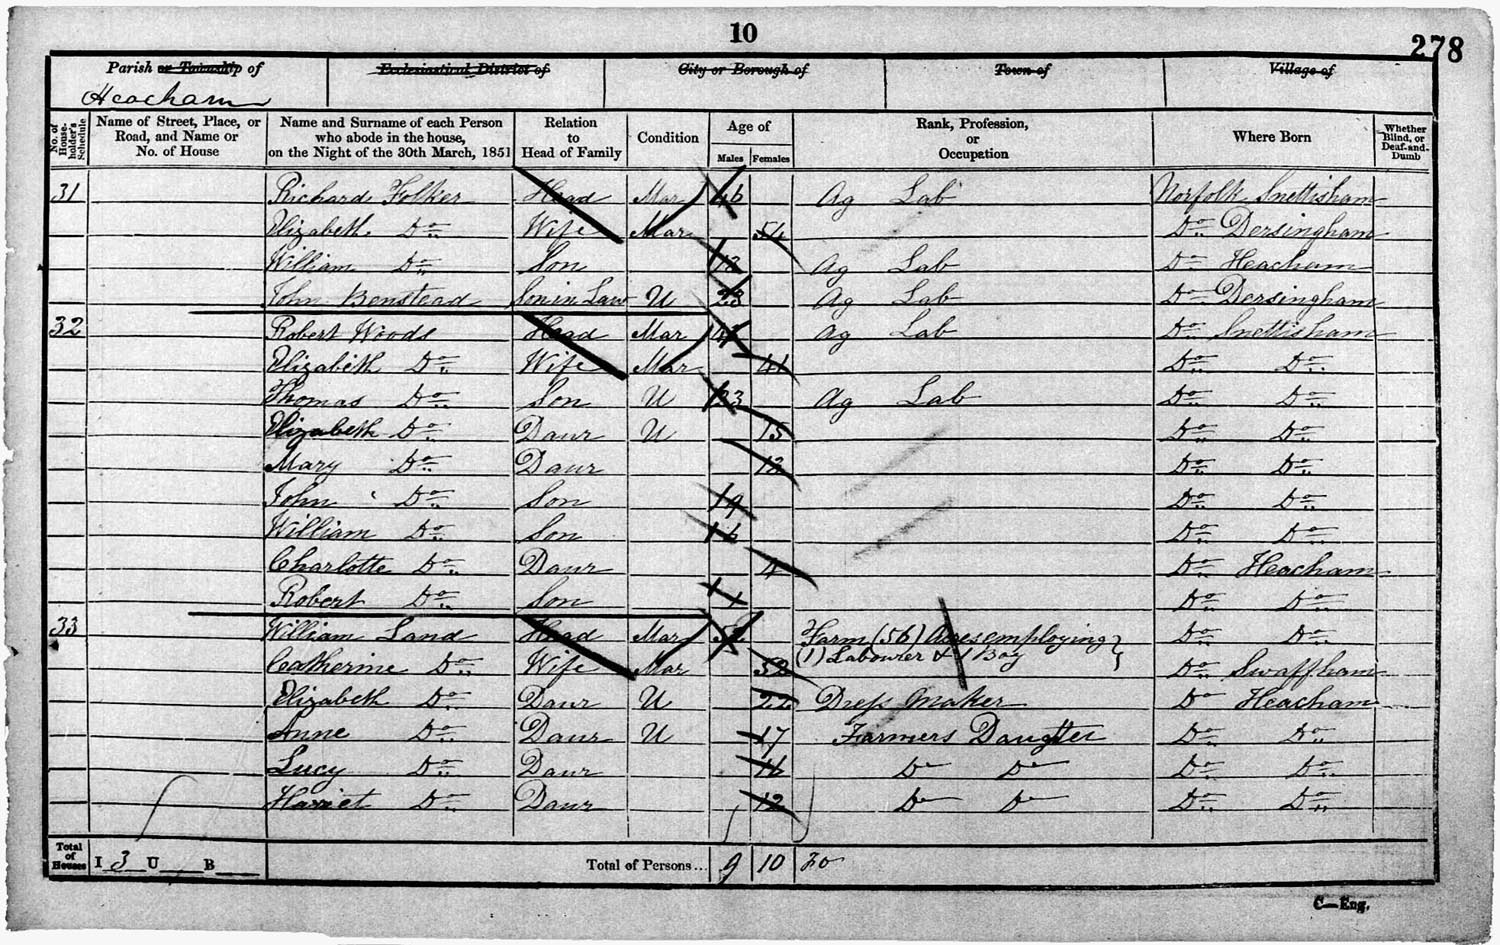 10
278
Parish or Township of
Ecclesiastical District of
City or Borough of
Town of
Village of
Heacham
No. of House-holder's Schedule
Name of Street, Place, or Road, and Name or No. of House
Name and Surname of each Person who abode in the house, on the Night of the 30th March, 1851
Relation to Head of Family
Condition
Age of
Males
Females
Rank, Profession, or Occupation
Where Born
Whether Blind, or Deaf-and-Dumb
31 Richard Folker Head Mar 46 Ag Lab Norfolk Snettisham
Elizabeth Do Wife Mar 54 Do Dersingham
William Do Son Ag Lab Do Heacham
John Benstead Son in Law U 23 Ag Lab Do Dersingham
32 Robert Woods Head Mar Ag Lab Do Snettisham
Elizabeth Do Wife Mar 41 Do Do
Thomas Do Son U 23 Ag Lab Do Do
Elizabeth Do Daur U 15 Do Do
Mary Do Daur 12 Do Do
John Do Son Do Do
William Do Son Do Do
Charlotte Do Daur 4 Do Heacham
Robert Do Son 1 Do Do
33 William Land Head Mar Farm (56) Acres employing Do Do
(1) Labourer & 1 Boy
Catherine Do Wife Mar 52 Do Swaffham
Elizabeth Do Daur U 22 Dress Maker Do Heacham
Anne Do Daur U 17 Farmers Daughter Do Do
Lucy Do Daur Do Do Do Do
Harriet Do Daur 12 Do Do Do Do
Total of Houses
I 3 U B
Total of Persons... 9 10
C—Eng.